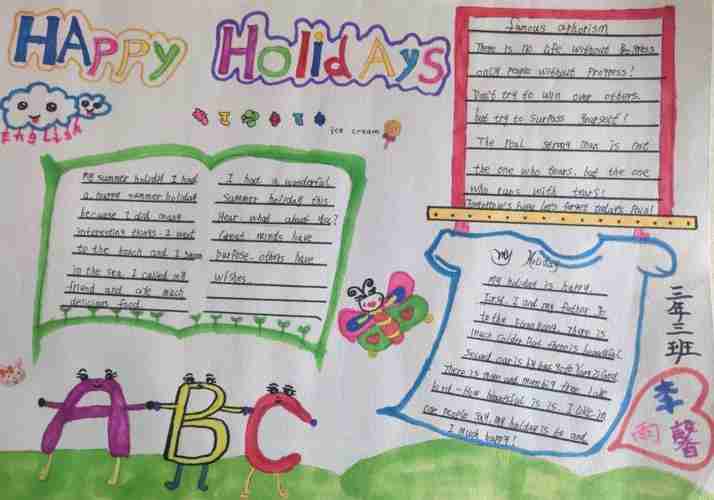 HAPPY Holidays
English
ice cream
My summer holiday I had
a summer holiday
because I did many
interesting things. I went
to the beach and I swam
in the sea. I called my
friend and ate much
delicious food.
I had a wonderful
summer holiday this
Year. what about You?
Great minds have
purpose. others have
wishes
famous aphorism
There is no life without
only People without Progress!
Don't try to win over others.
but try to surpass Yourself!
The Real strong man is not
the one who tears. but the one
who runs with tears!
let's forget today's
my Holiday
My holiday is happy.
First, I and my father
to the There is
much that there is beautiful.
Second
There is many and
How beautiful is is. I
my holiday is and
I much happy!
三年二班
李雨馨
ABC